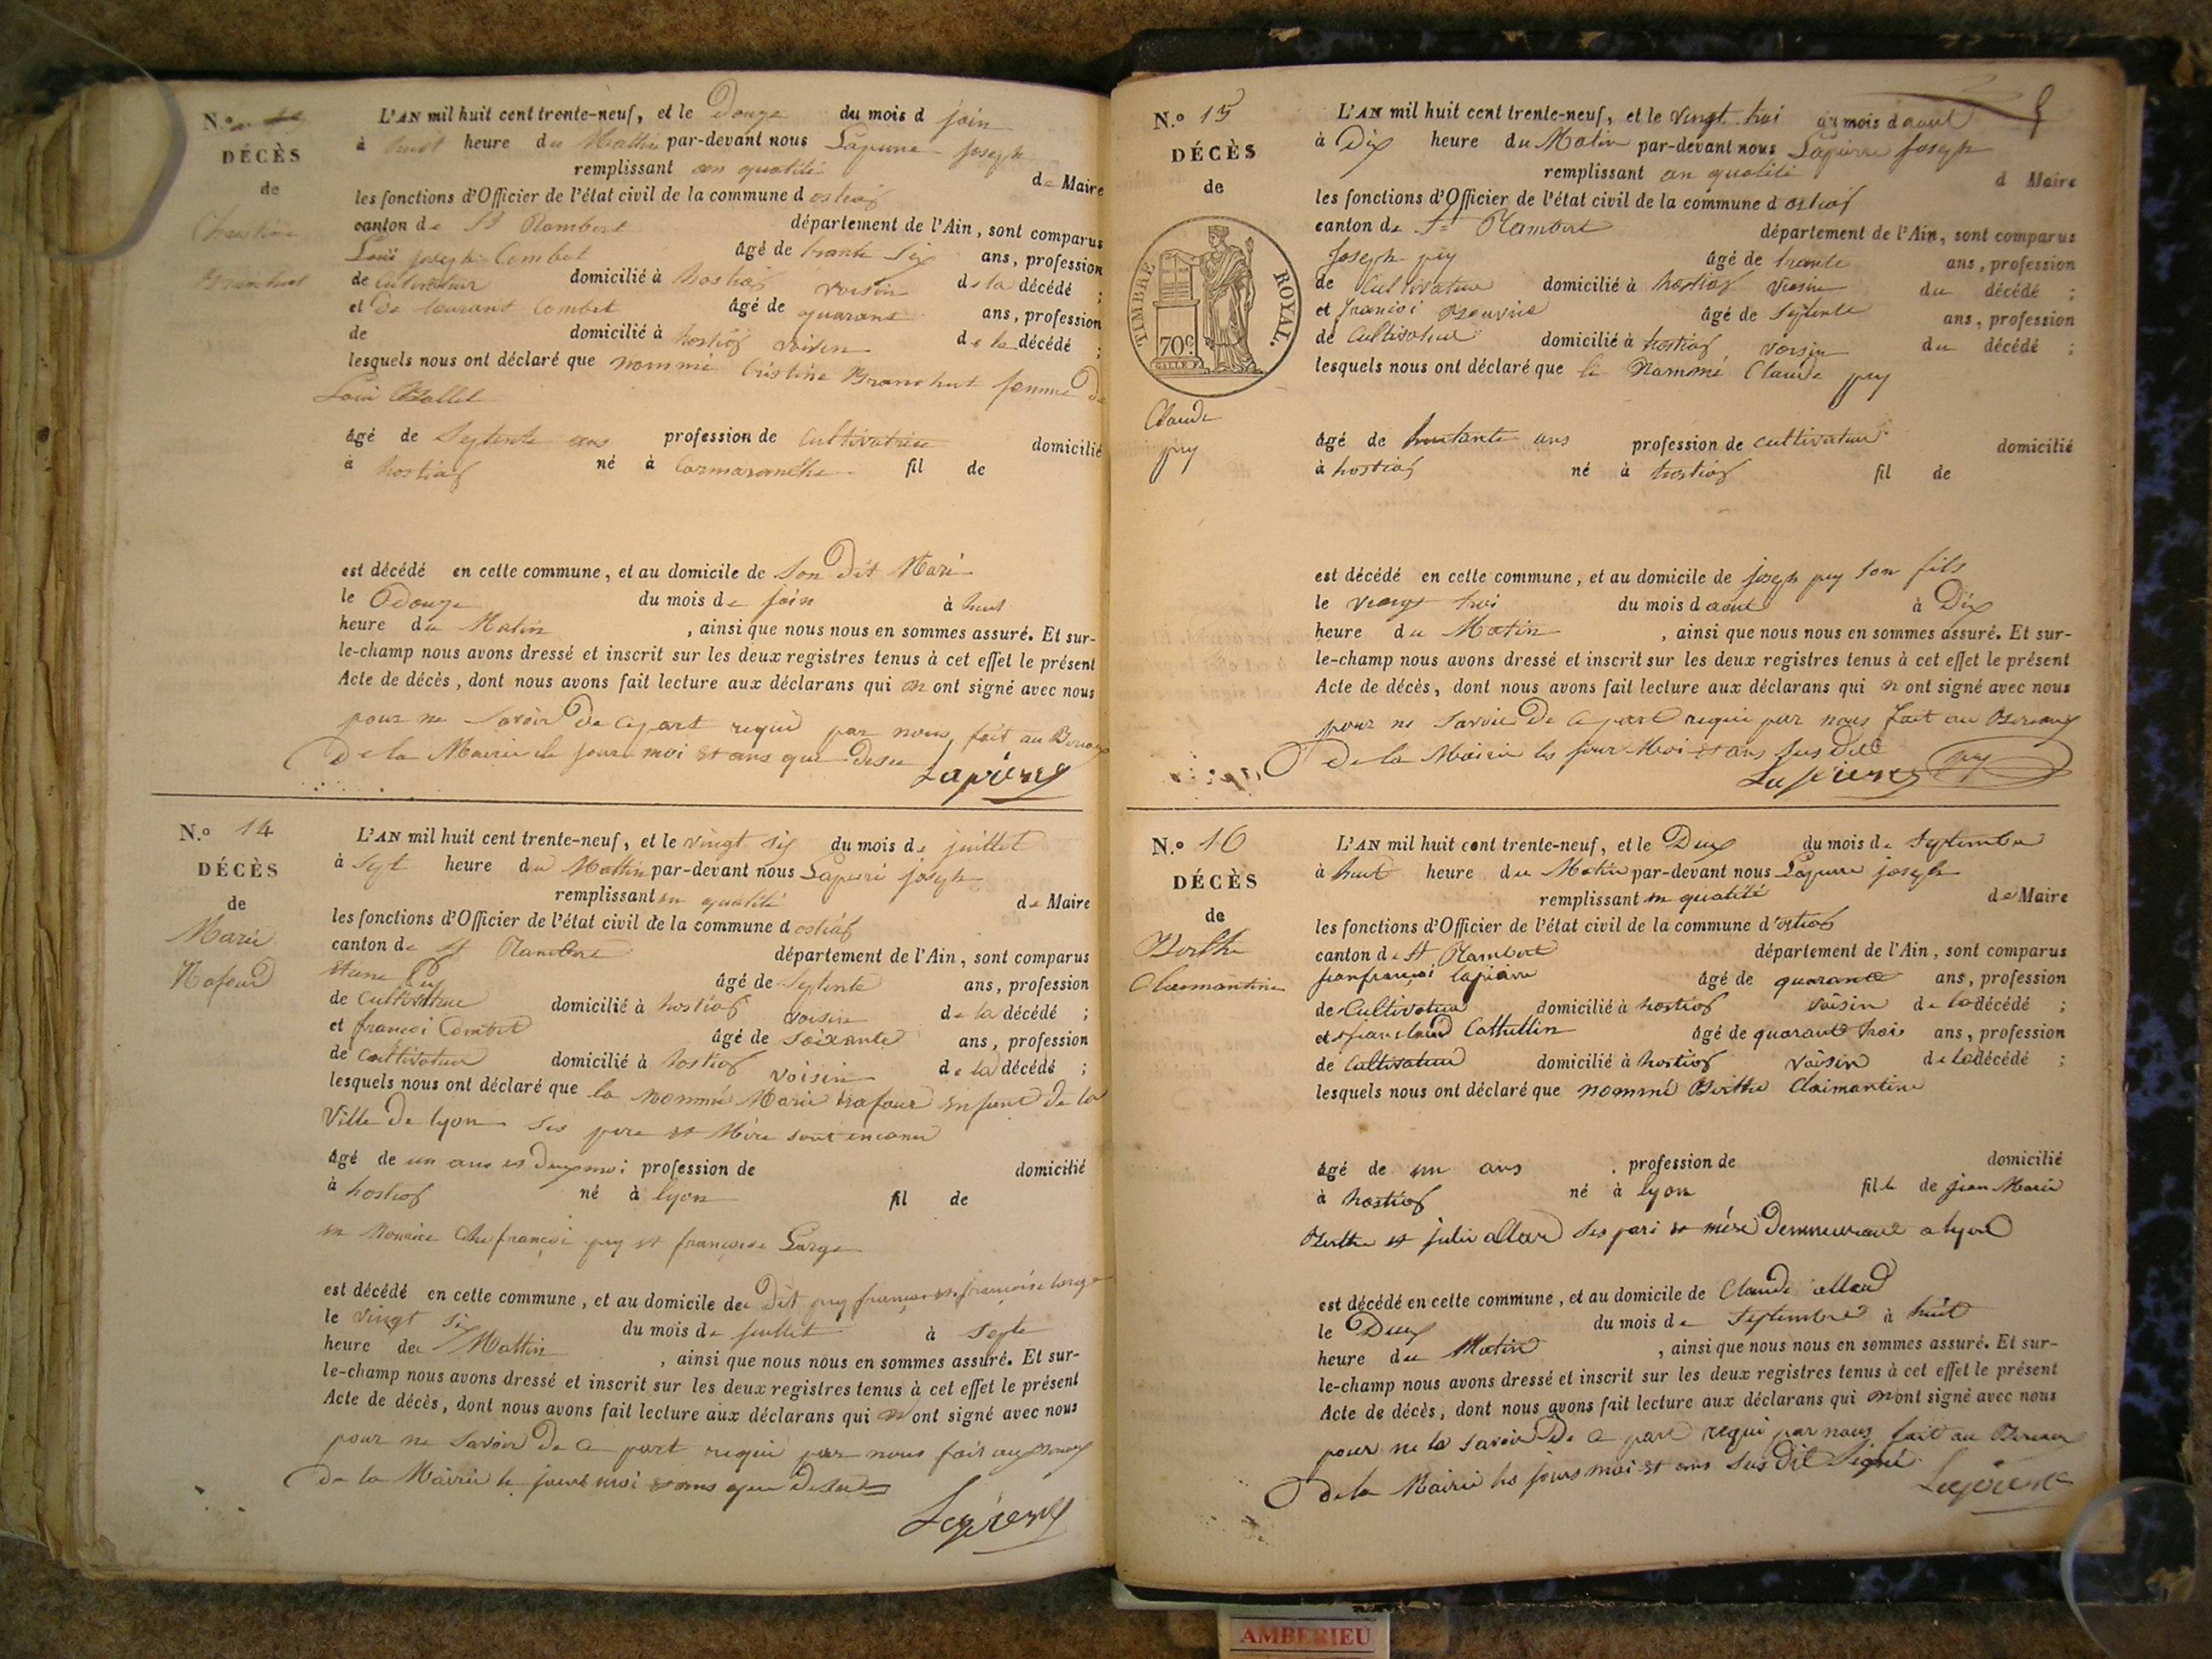 N.o
DÉCÈS
de
Christine
Branchut
L'AN mil huit cent trente-neuf, et le Douze du mois d join
à huit heure du Mattin par-devant nous Lapierre joseph
remplissant en qualité de Maire
les fonctions d'Officier de l'état civil de la commune d ostiaz
canton de St Rambert département de l'Ain, sont comparus
Loui joseph Combet âgé de trante Six ans, profession
de Cultivateur domicilié à hostiaz voisin de la décédé ;
et De laurant Combet âgé de quarant ans, profession
de domicilié à hostiaz voisin de la décédé ;
lesquels nous ont déclaré que nommé Cristine Branchut femme de
Loui Ballet
âgé de Septente ans profession de Cultivatrice domicilié
à hostiaz né à Cormaranche fil de
est décédé en cette commune, et au domicile de Son Dit Mari
le Douze du mois de join à huit
heure du Matin , ainsi que nous nous en sommes assuré. Et sur-
le-champ nous avons dressé et inscrit sur les deux registres tenus à cet effet le présent
Acte de décès, dont nous avons fait lecture aux déclarans qui n ont signé avec nous
pour ne Savoir De Ce part requi par nous fait au Bureau
De la Mairie le jour moi et ans que Desu
Lapierre
N.o 14
DÉCÈS
de
Marie
Nafour
L'AN mil huit cent trente-neuf, et le vingt Six du mois de juillet
à Sept heure du Mattin par-devant nous Lapierre joseph
remplissant en qualité de Maire
les fonctions d'Officier de l'état civil de la commune d ostiaz
canton de St Rambert département de l'Ain, sont comparus
Etiene Py âgé de Septente ans, profession
de Cultivateur domicilié à hostiaz voisin de la décédé ;
et françoi Combet âgé de Soixante ans, profession
de Cultivateur domicilié à hostiaz voisin de la décédé ;
lesquels nous ont déclaré que la nommé Marie Nafour enfant de la
Ville de lyon Ses pere et Mère sont inconnu
âgé de un ans et Deux moi profession de domicilié
à hostiaz né à lyon fil de
en Nourice Che françoi py et françoise Large
est décédé en cette commune, et au domicile de Dit py françoi et françoise large
le vingt Six du mois de juillet à Septe
heure de Mattin , ainsi que nous nous en sommes assuré. Et sur-
le-champ nous avons dressé et inscrit sur les deux registres tenus à cet effet le présent
Acte de décès, dont nous avons fait lecture aux déclarans qui n'ont signé avec nous
pour ne Savoir De Ce part requi par nous fait au Bureau
De la Mairie le jour moi et ans que Desus
Lapierre
N.o 15
DÉCÈS
de
TIMBRE ROYAL.
70c.
Claude
py
L'AN mil huit cent trente-neuf, et le vingt troi du mois d aout
à Dix heure du Matin par-devant nous Lapierre Joseph
remplissant en qualité d Maire
les fonctions d'Officier de l'état civil de la commune d ostiaz
canton de St Rambert département de l'Ain, sont comparus
Joseph py âgé de trente ans, profession
de Cultivateur domicilié à hostiaz voisin du décédé ;
et françoi âgé de Septente ans, profession
de Cultivateur domicilié à hostiaz voisin du décédé ;
lesquels nous ont déclaré que le Nommé Claude py
âgé de huitante ans profession de cultivateur domicilié
à hostiaz né à hostiaz fil de
est décédé en cette commune, et au domicile de joseph py Son fils
le vingt troi du mois d aout à Dix
heure du Matin , ainsi que nous nous en sommes assuré. Et sur-
le-champ nous avons dressé et inscrit sur les deux registres tenus à cet effet le présent
Acte de décès, dont nous avons fait lecture aux déclarans qui n ont signé avec nous
pour ne Savoir De Ce part requi par nous fait au Bureau
De la Mairie les jour Moi et ans Sus Dit
Lapierre py
N.o 16
DÉCÈS
de
Berthe
Claimantine
L'AN mil huit cent trente-neuf, et le Deux du mois de Septembre
à huit heure du Matin par-devant nous Lapierre joseph
remplissant en qualité de Maire
les fonctions d'Officier de l'état civil de la commune d'ostiaz
canton de St Rambert département de l'Ain, sont comparus
jeanfrançoi lapierre âgé de quarante ans, profession
de Cultivateur domicilié à hostiaz voisin de la décédé ;
et jeanclaud Cattettin âgé de quarante trois ans, profession
de Cultivateur domicilié à hostiaz voisin de la décédé ;
lesquels nous ont déclaré que nommé Berthe Claimantine
âgé de un ans profession de domicilié
à hostiaz né à lyon fille de jean Marie
Berthe et julie allard Ses pari et mére Demmeurant a lyon
est décédé en cette commune, et au domicile de Claude allard
le Deux du mois de Septembre à huit
heure du Matin , ainsi que nous nous en sommes assuré. Et sur-
le-champ nous avons dressé et inscrit sur les deux registres tenus à cet effet le présent
Acte de décès, dont nous avons fait lecture aux déclarans qui n'ont signé avec nous
pour ne la Savoir De Ce part requi par nous fait au Bureau
De la Mairie les jours moi et ans Sus Dit Signé
Lapierre
AMBERIEU